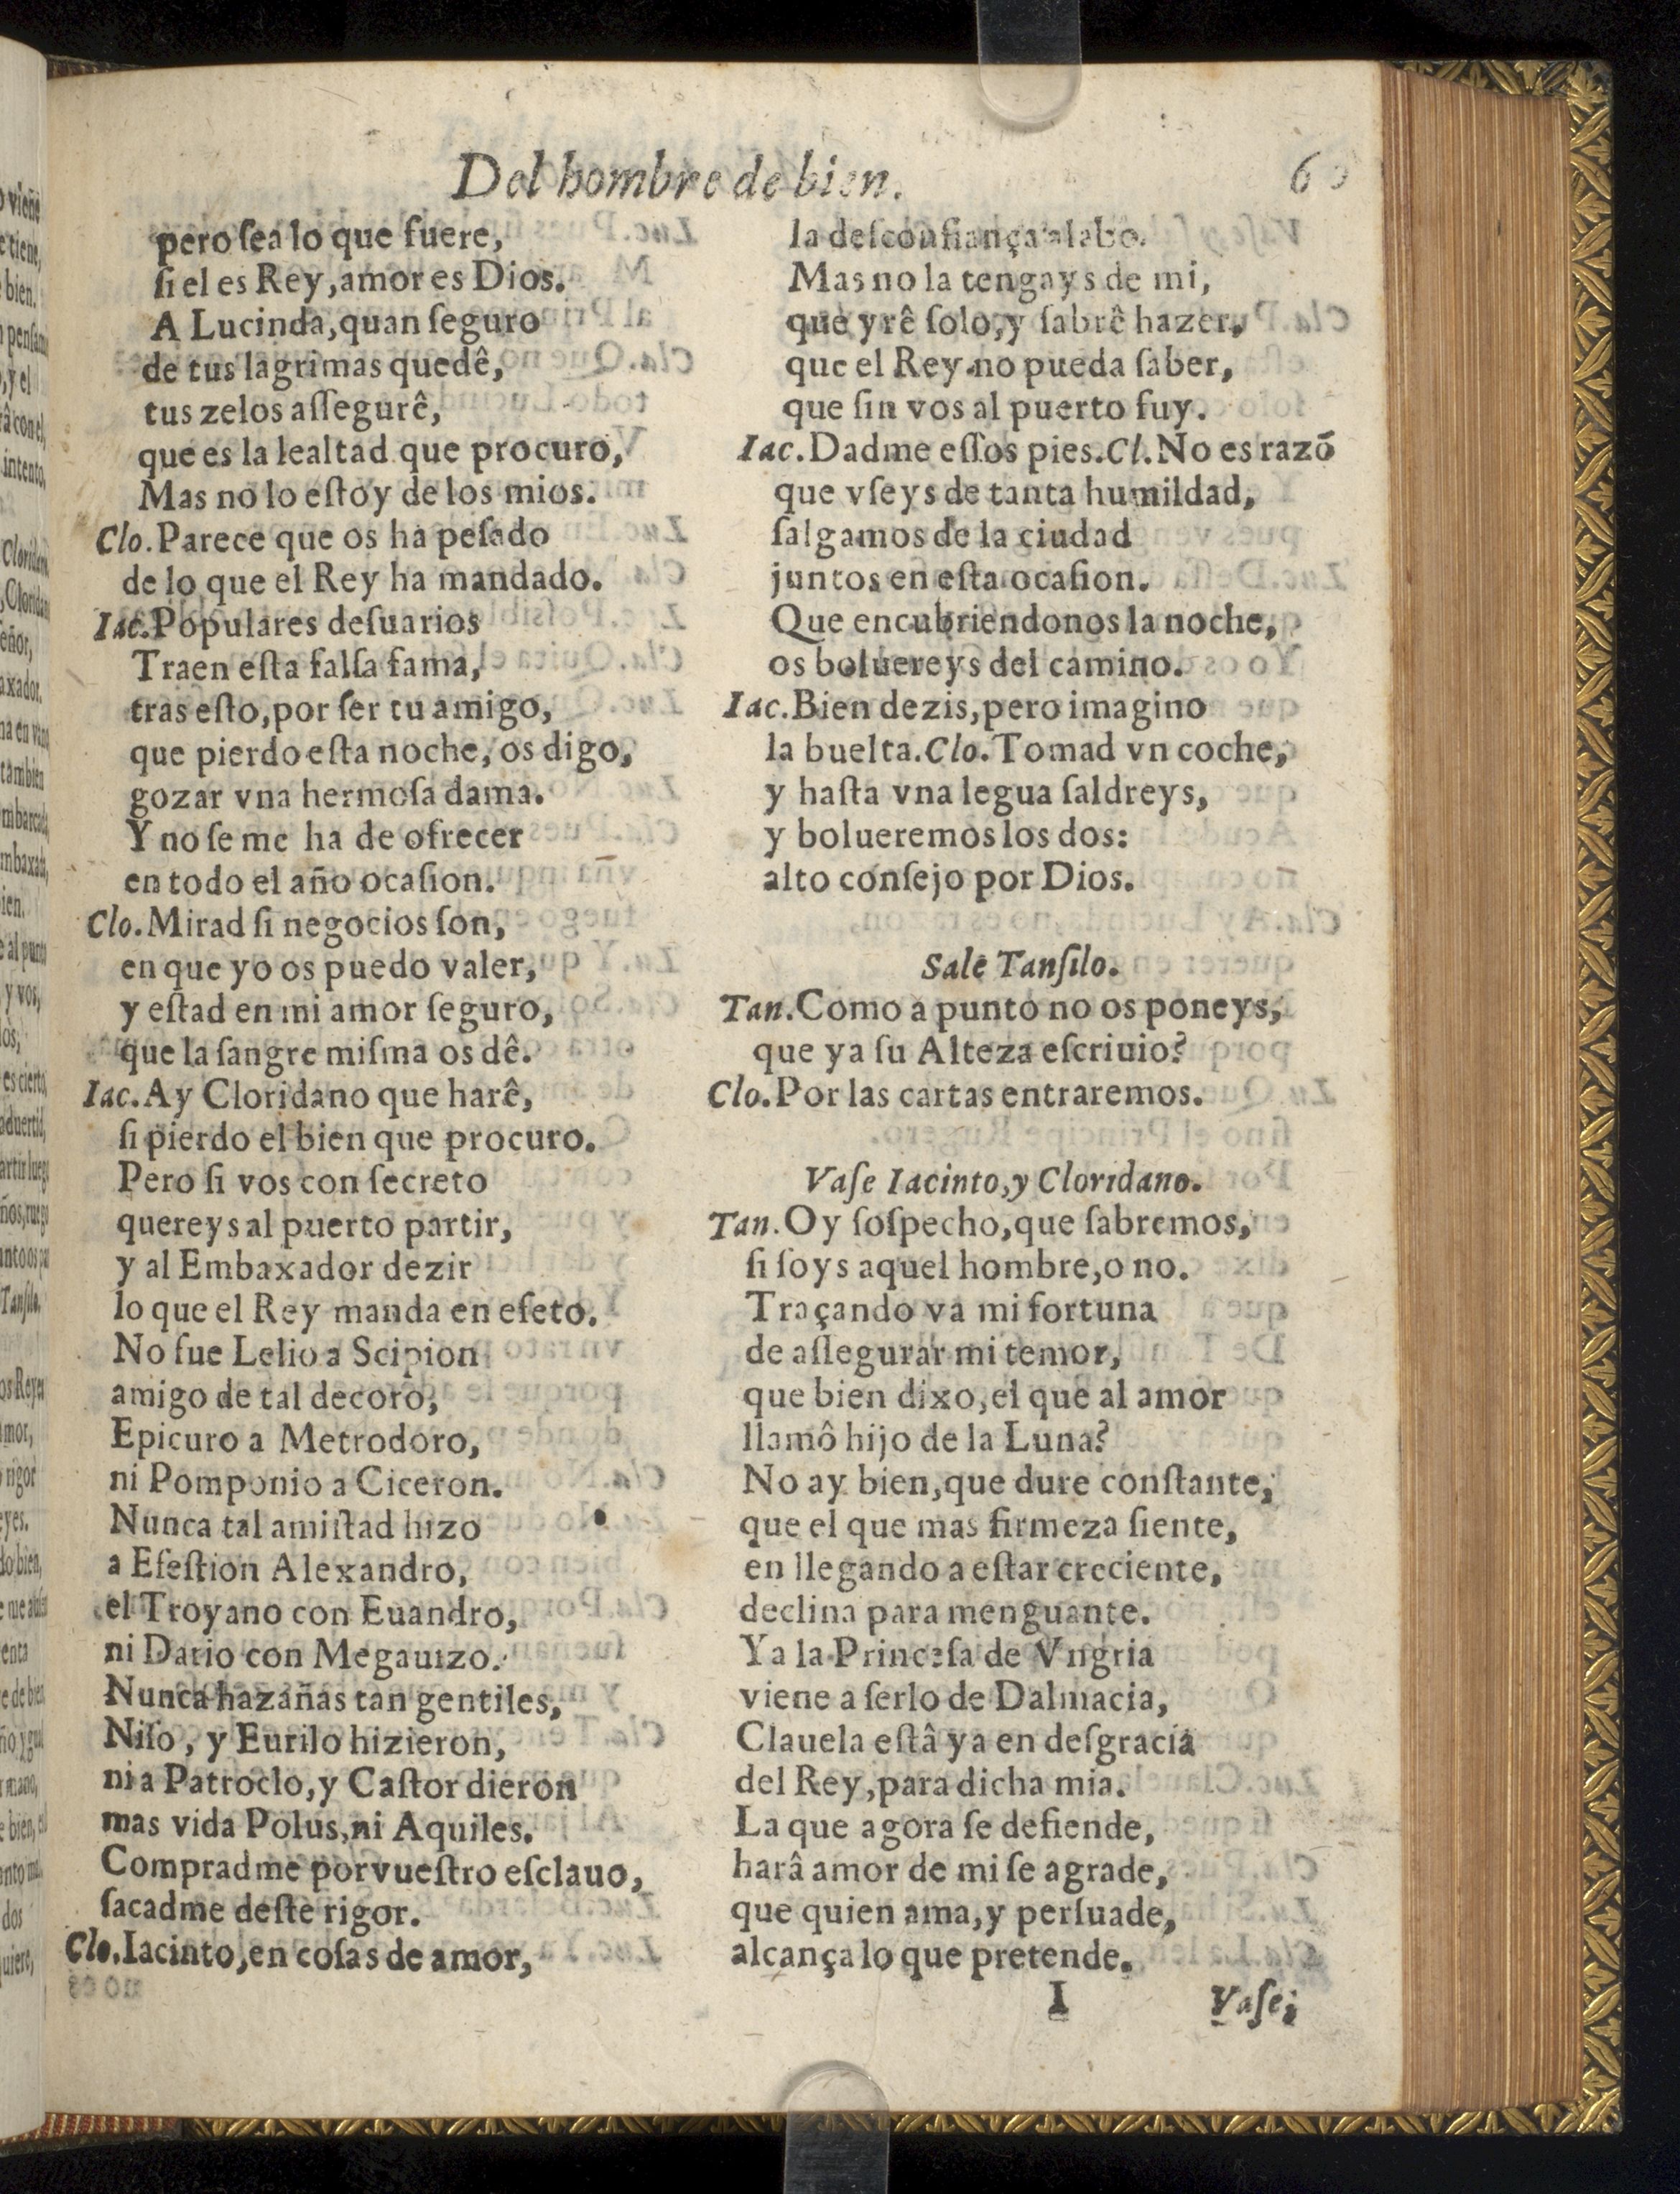 Del hombre de bien.
pero ſea lo que fuere,
ſi el es Rey, amor es Dios.
A Lucinda, quan ſeguro
de tus lagrimas quedê,
tus zelos aſſegurê,
que es la lealtad que procuro,
Mas no lo eſtoy de los mios.
Clo. Parece que os ha peſado
de lo que el Rey ha mandado.
Iac. Populares deſuarios
Traen eſta falſa fama,
tras eſto, por ſer tu amigo,
que pierdo eſta noche, os digo,
gozar vna hermoſa dama.
Y no ſe me ha de ofrecer
en todo el año ocaſion.
Clo. Mirad ſi negocios ſon,
en que yo os puedo valer,
y eſtad en mi amor ſeguro,
que la ſangre miſma os dê.
Iac. Ay Cloridano que harê,
ſi pierdo el bien que procuro.
Pero ſi vos con ſecreto
quereys al puerto partir,
y al Embaxador dezir
lo que el Rey manda en efeto.
No fue Lelio a Scipion
amigo de tal decoro,
Epicuro a Metrodoro,
ni Pomponio a Ciceron.
Nunca tal amiſtad hizo
a Efeſtion Alexandro,
el Troyano con Euandro,
ni Dario con Megauizo.
Nunca hazañas tan gentiles,
Niſo, y Eurilo hizieron,
ni a Patroclo, y Caſtor dieron
mas vida Polus, ni Aquiles.
Compradme por vueſtro eſclauo,
ſacadme deſte rigor.
Clo. Iacinto, en coſas de amor,
la deſconfiança alabo.
Mas no la tengays de mi,
que yrê ſolo, y ſabrê hazer,
que el Rey no pueda ſaber,
que ſin vos al puerto fuy.
Iac. Dadme eſſos pies. Cl. No es razõ
que vſeys de tanta humildad,
ſalgamos de la ciudad
juntos en eſta ocaſion.
Que encubriendonos la noche,
os boluereys del camino.
Iac. Bien dezis, pero imagino
la buelta. Clo. Tomad vn coche,
y haſta vna legua ſaldreys,
y bolueremos los dos:
alto conſejo por Dios.
Sale Tanſilo.
Tan. Como a punto no os poneys,
que ya ſu Alteza eſcriuio?
Clo. Por las cartas entraremos.
Vaſe Iacinto, y Cloridano.
Tan. Oy ſoſpecho, que ſabremos,
ſi ſoys aquel hombre, o no.
Traçando va mi fortuna
de aſſegurar mi temor,
que bien dixo, el que al amor
llamô hijo de la Luna?
No ay bien, que dure conſtante,
que el que mas firmeza ſiente,
en llegando a eſtar creciente,
declina para menguante.
Ya la Princeſa de Vngria
viene a ſerlo de Dalmacia,
Clauela eſtâ ya en deſgracia
del Rey, para dicha mia.
La que agora ſe defiende,
harâ amor de mi ſe agrade,
que quien ama, y perſuade,
alcança lo que pretende.
I Vaſe,